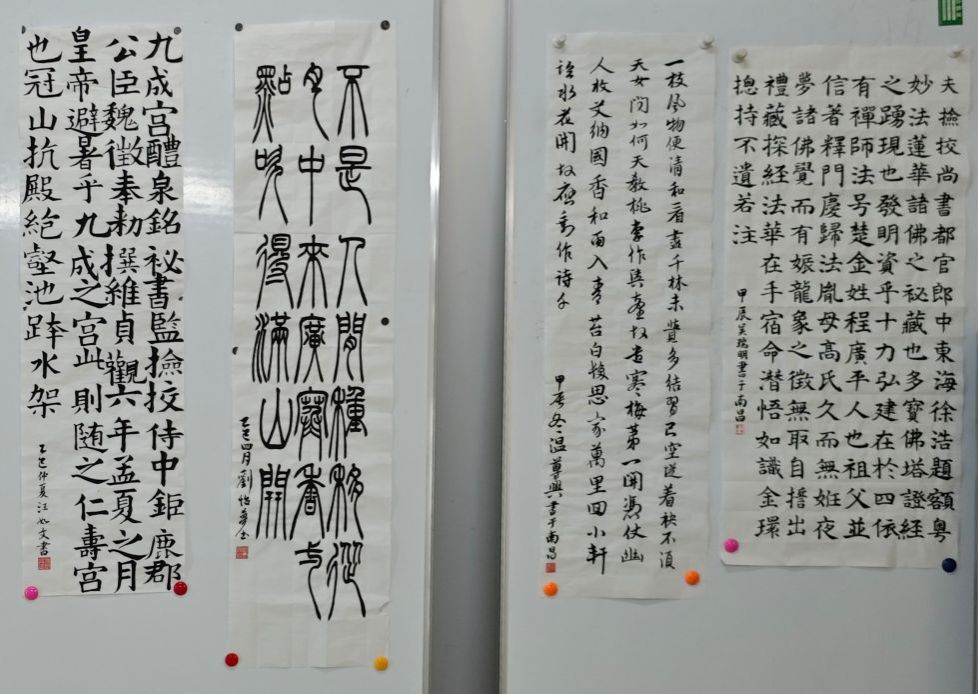 九成宫醴泉銘祕書監撿挍侍中鉅鹿郡
公臣魏徵奉勅撰維貞觀六年孟夏之月
皇帝避暑乎九成之宫此則随之仁壽宫
也冠山抗殿絶壑池跨水架
乙巳仲夏汪文書
不是人間種移從
月中來廣寒香弌
點吹得滿山開
乙巳四月劉怡華
一枝風物便清和看盡千林未覺多結習已空從着袂不須
天女問如何天教桃李作輿臺故遣寒梅第一開憑仗幽
人收艾納國香和雨入青苔白髮思家萬里回小軒
臨水花開故應剩作詩千
甲辰冬温尊興書于南昌
夫撿挍尚書都官郎中東海徐浩題額粤
妙法蓮華諸佛之祕藏也多寶佛塔證經
之踴現也發明資乎十力弘建在於四依
有禪師法号楚金姓程廣平人也祖父並
信著釋門慶歸法胤母高氏久而無姙夜
夢諸佛覺而有娠龍象之徵無取自擅出
禮藏探經法華在手宿命潜悟如識金環
摠持不遺若注
甲辰吴瑞明書于南昌